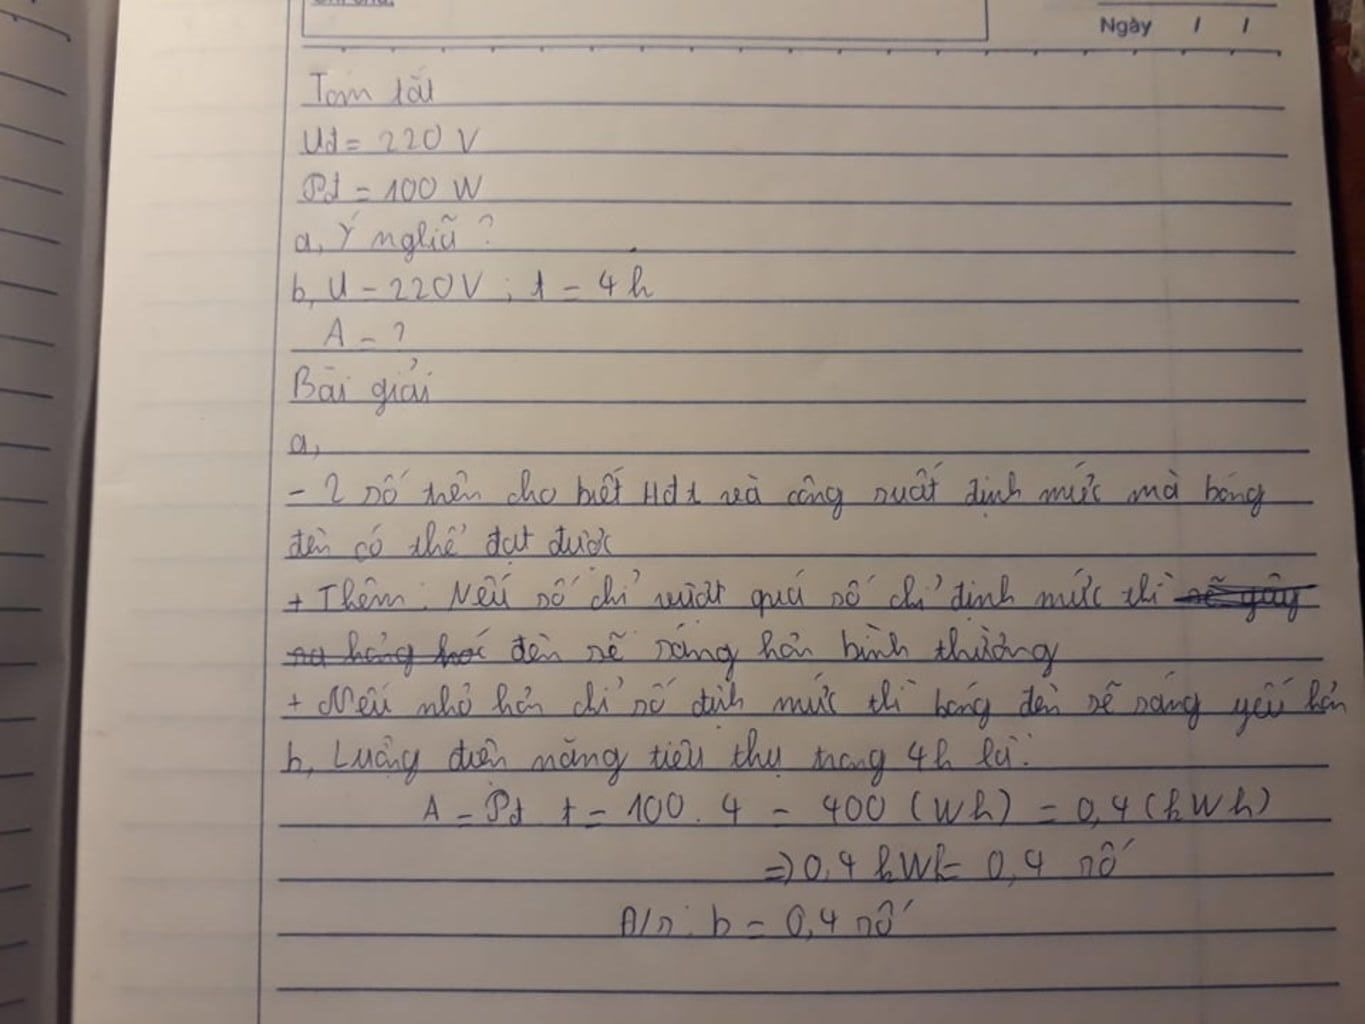 Ngày / /
Tóm tắt
Uđ = 220 V
Pđ = 100 W
a, Ý nghĩa ?
b, U = 220V ; t = 4 h
A = ?
Bài giải
a,
- 2 số trên cho biết Hđt và công suất định mức mà bóng
đèn có thể đạt được
+ Thêm : Nếu số chỉ vượt quá số chỉ định mức thì sẽ gây
ra hỏng hóc đèn sẽ sáng hơn bình thường
+ Nếu nhỏ hơn chỉ số định mức thì bóng đèn sẽ sáng yếu hơn
b, Lượng điện năng tiêu thụ trong 4h là:
A = Pđ . t = 100 . 4 = 400 (Wh) = 0,4 (kWh)
=> 0,4 kWh = 0,4 số
Đ/s : b = 0,4 số